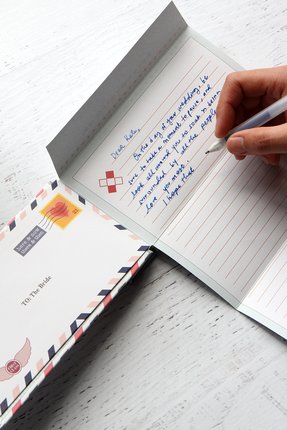 Dear Kate,
On the day of your wedding, be
sure to make a moment to pause, and
look all around you to soak in being
surrounded by all the people
love you most.
I hope that
TO: The Bride